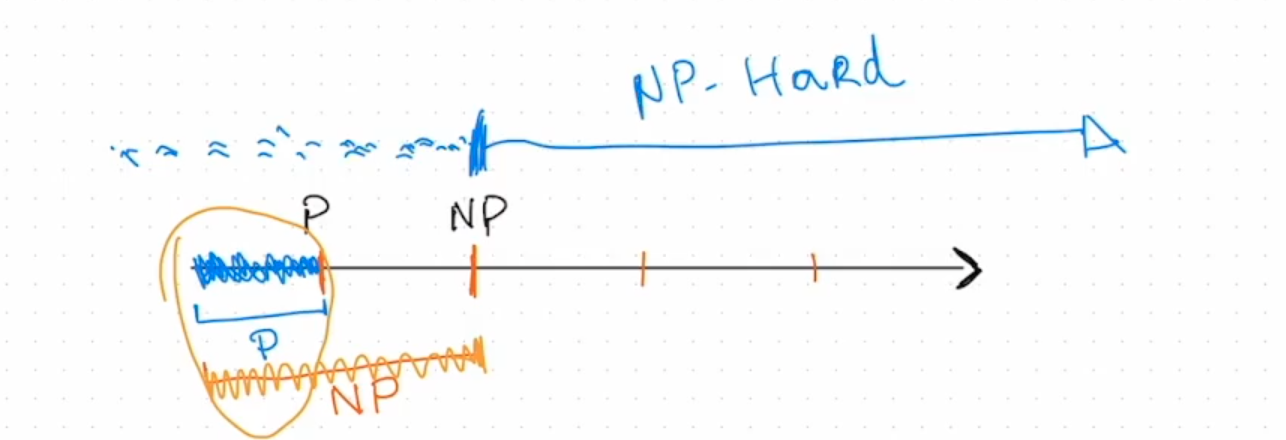 NP-Hard
P
NP
P
NP